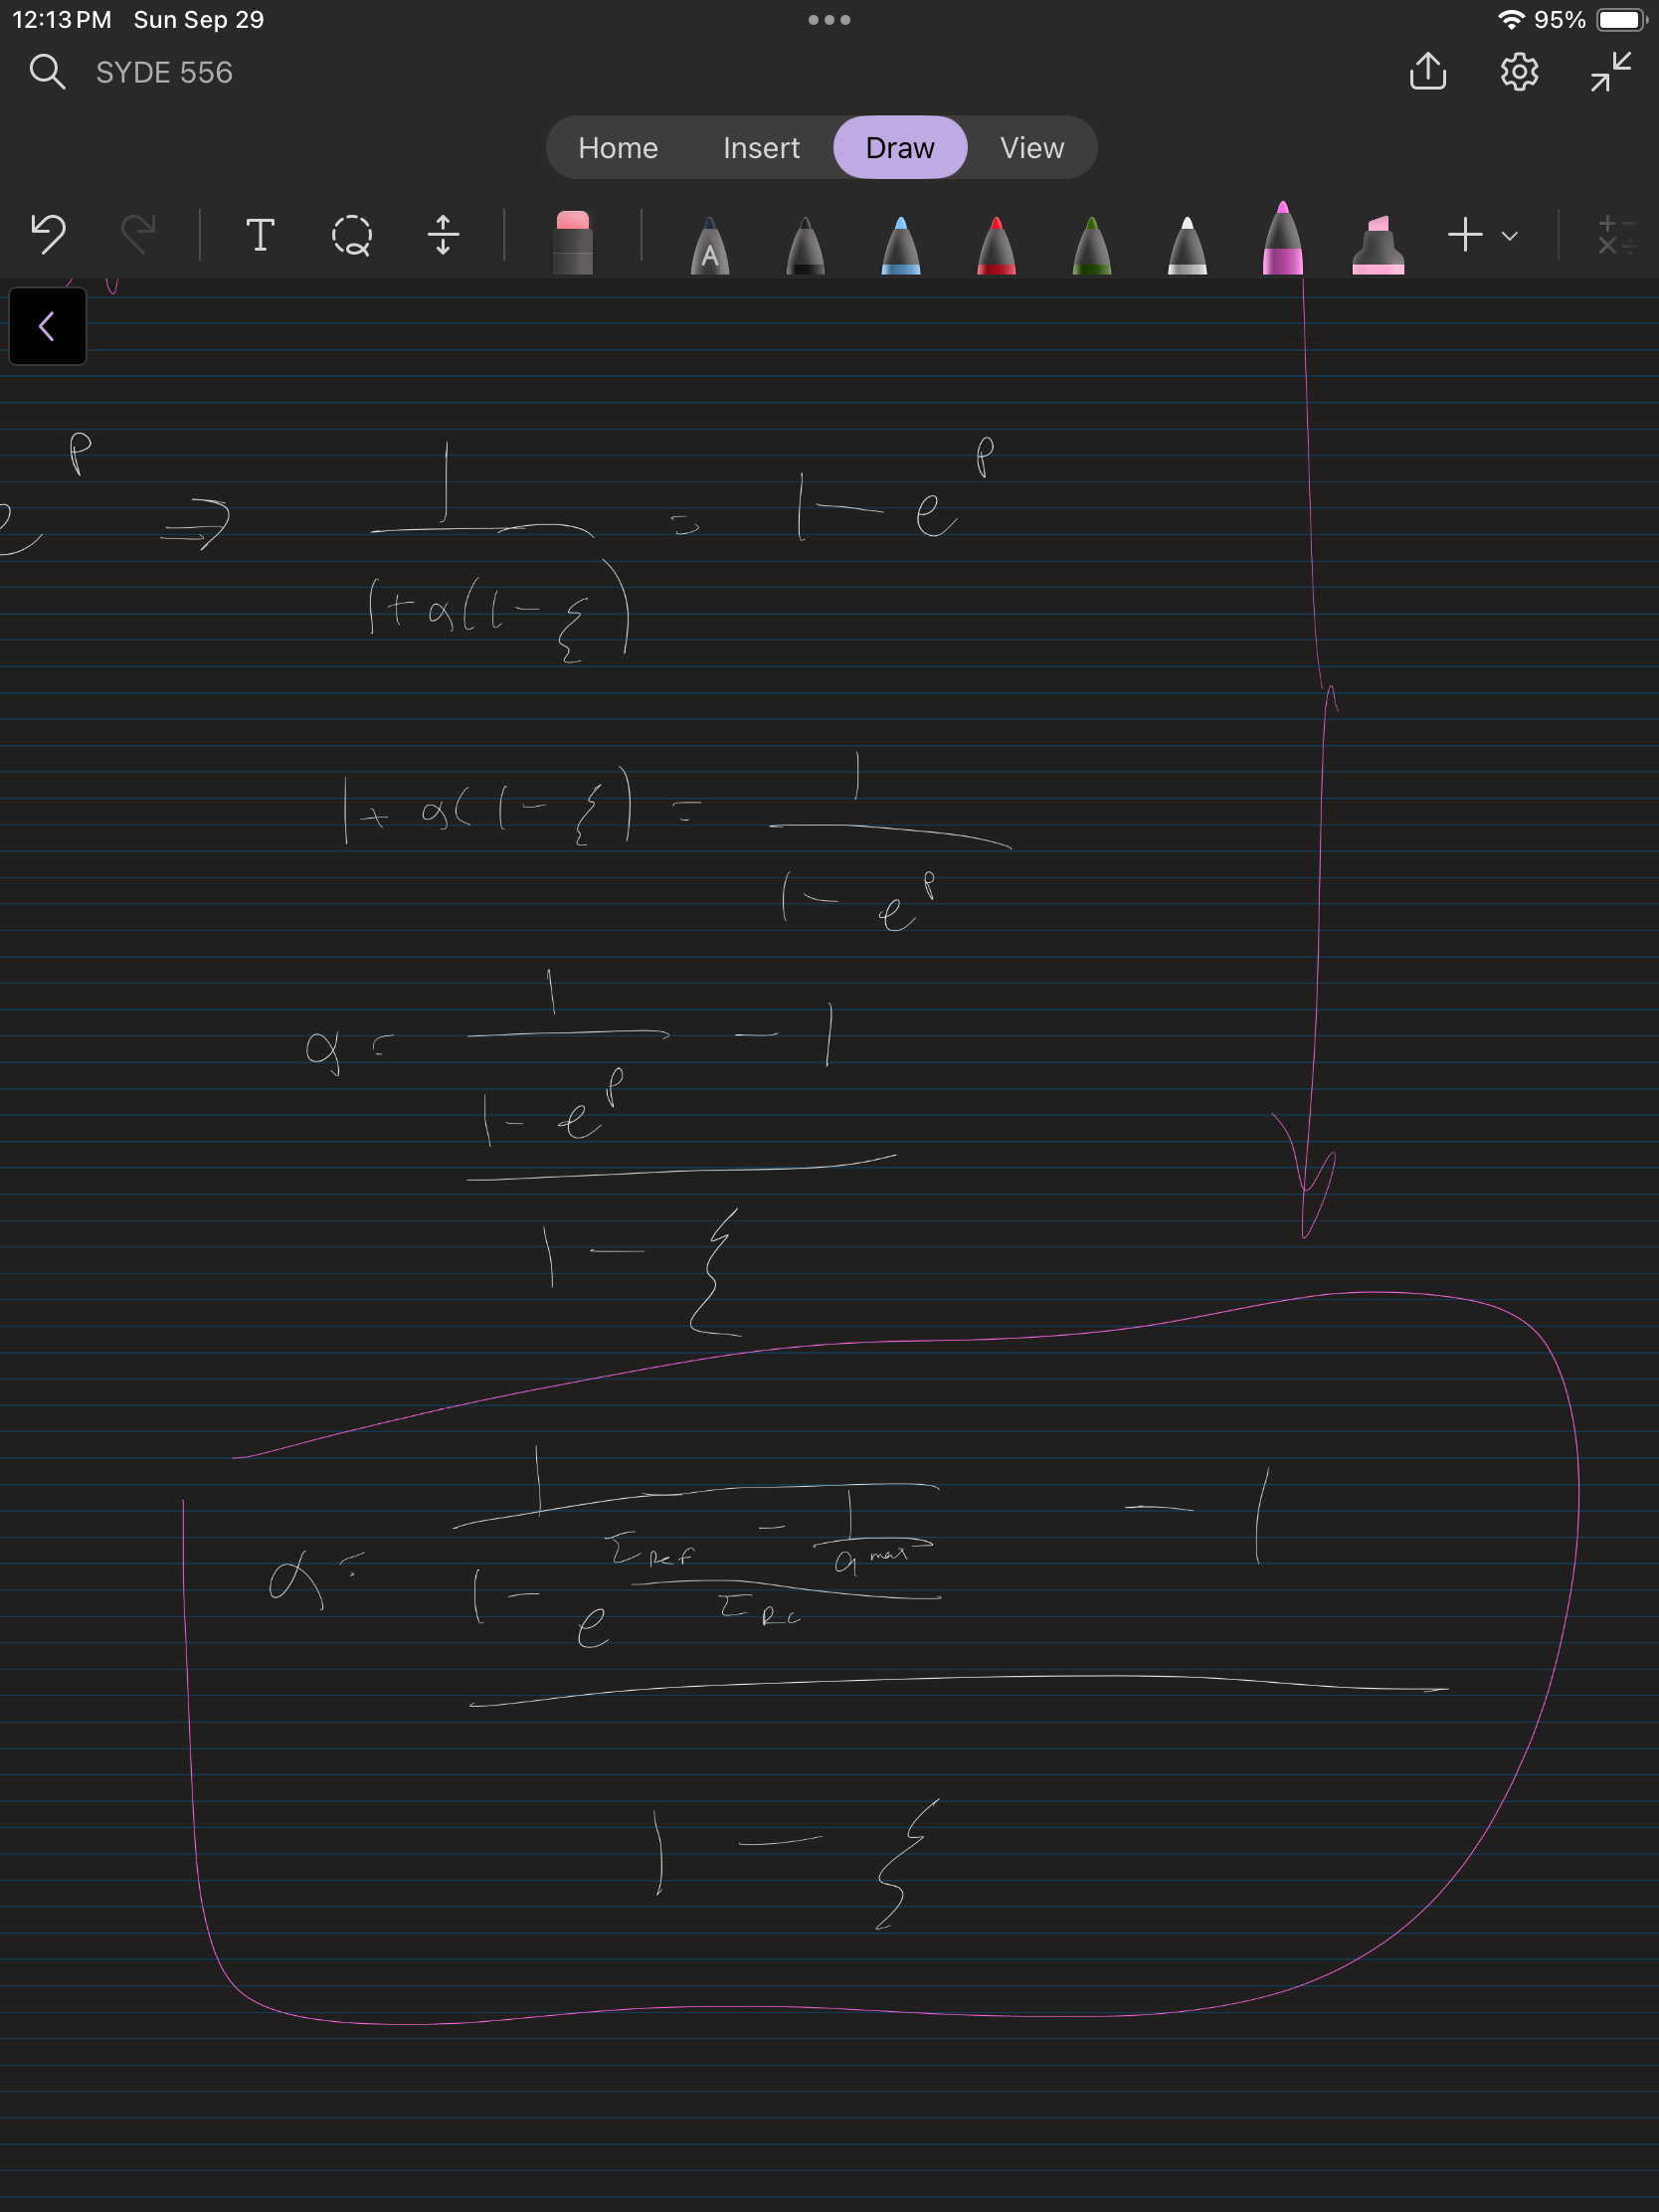 12:13 PM Sun Sep 29 95%
SYDE 556
Home Insert Draw View
T A
e^p ⇒ 1/(1+α(1-ξ)) = 1-e^p
1+α(1-ξ) = 1/(1-e^p)
α = (1/(1-e^p) - 1)/(1-ξ)
α = (1/(1-e^((τ_Ref - 1/a^max)/τ_RC)) - 1)/(1-ξ)